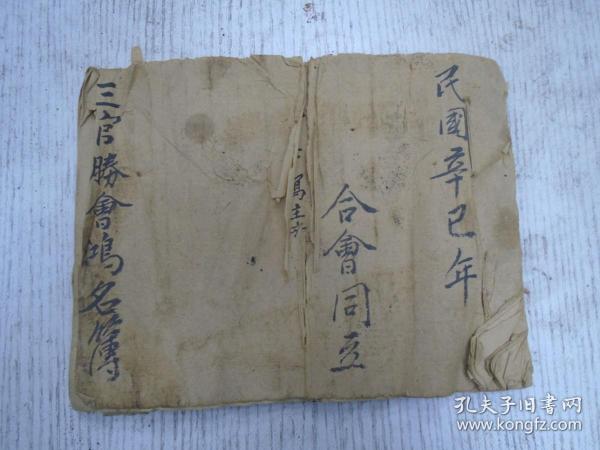 民國辛巳年
合會同立
三官勝會鴻名簿
孔夫子旧书网
www.kongfz.com